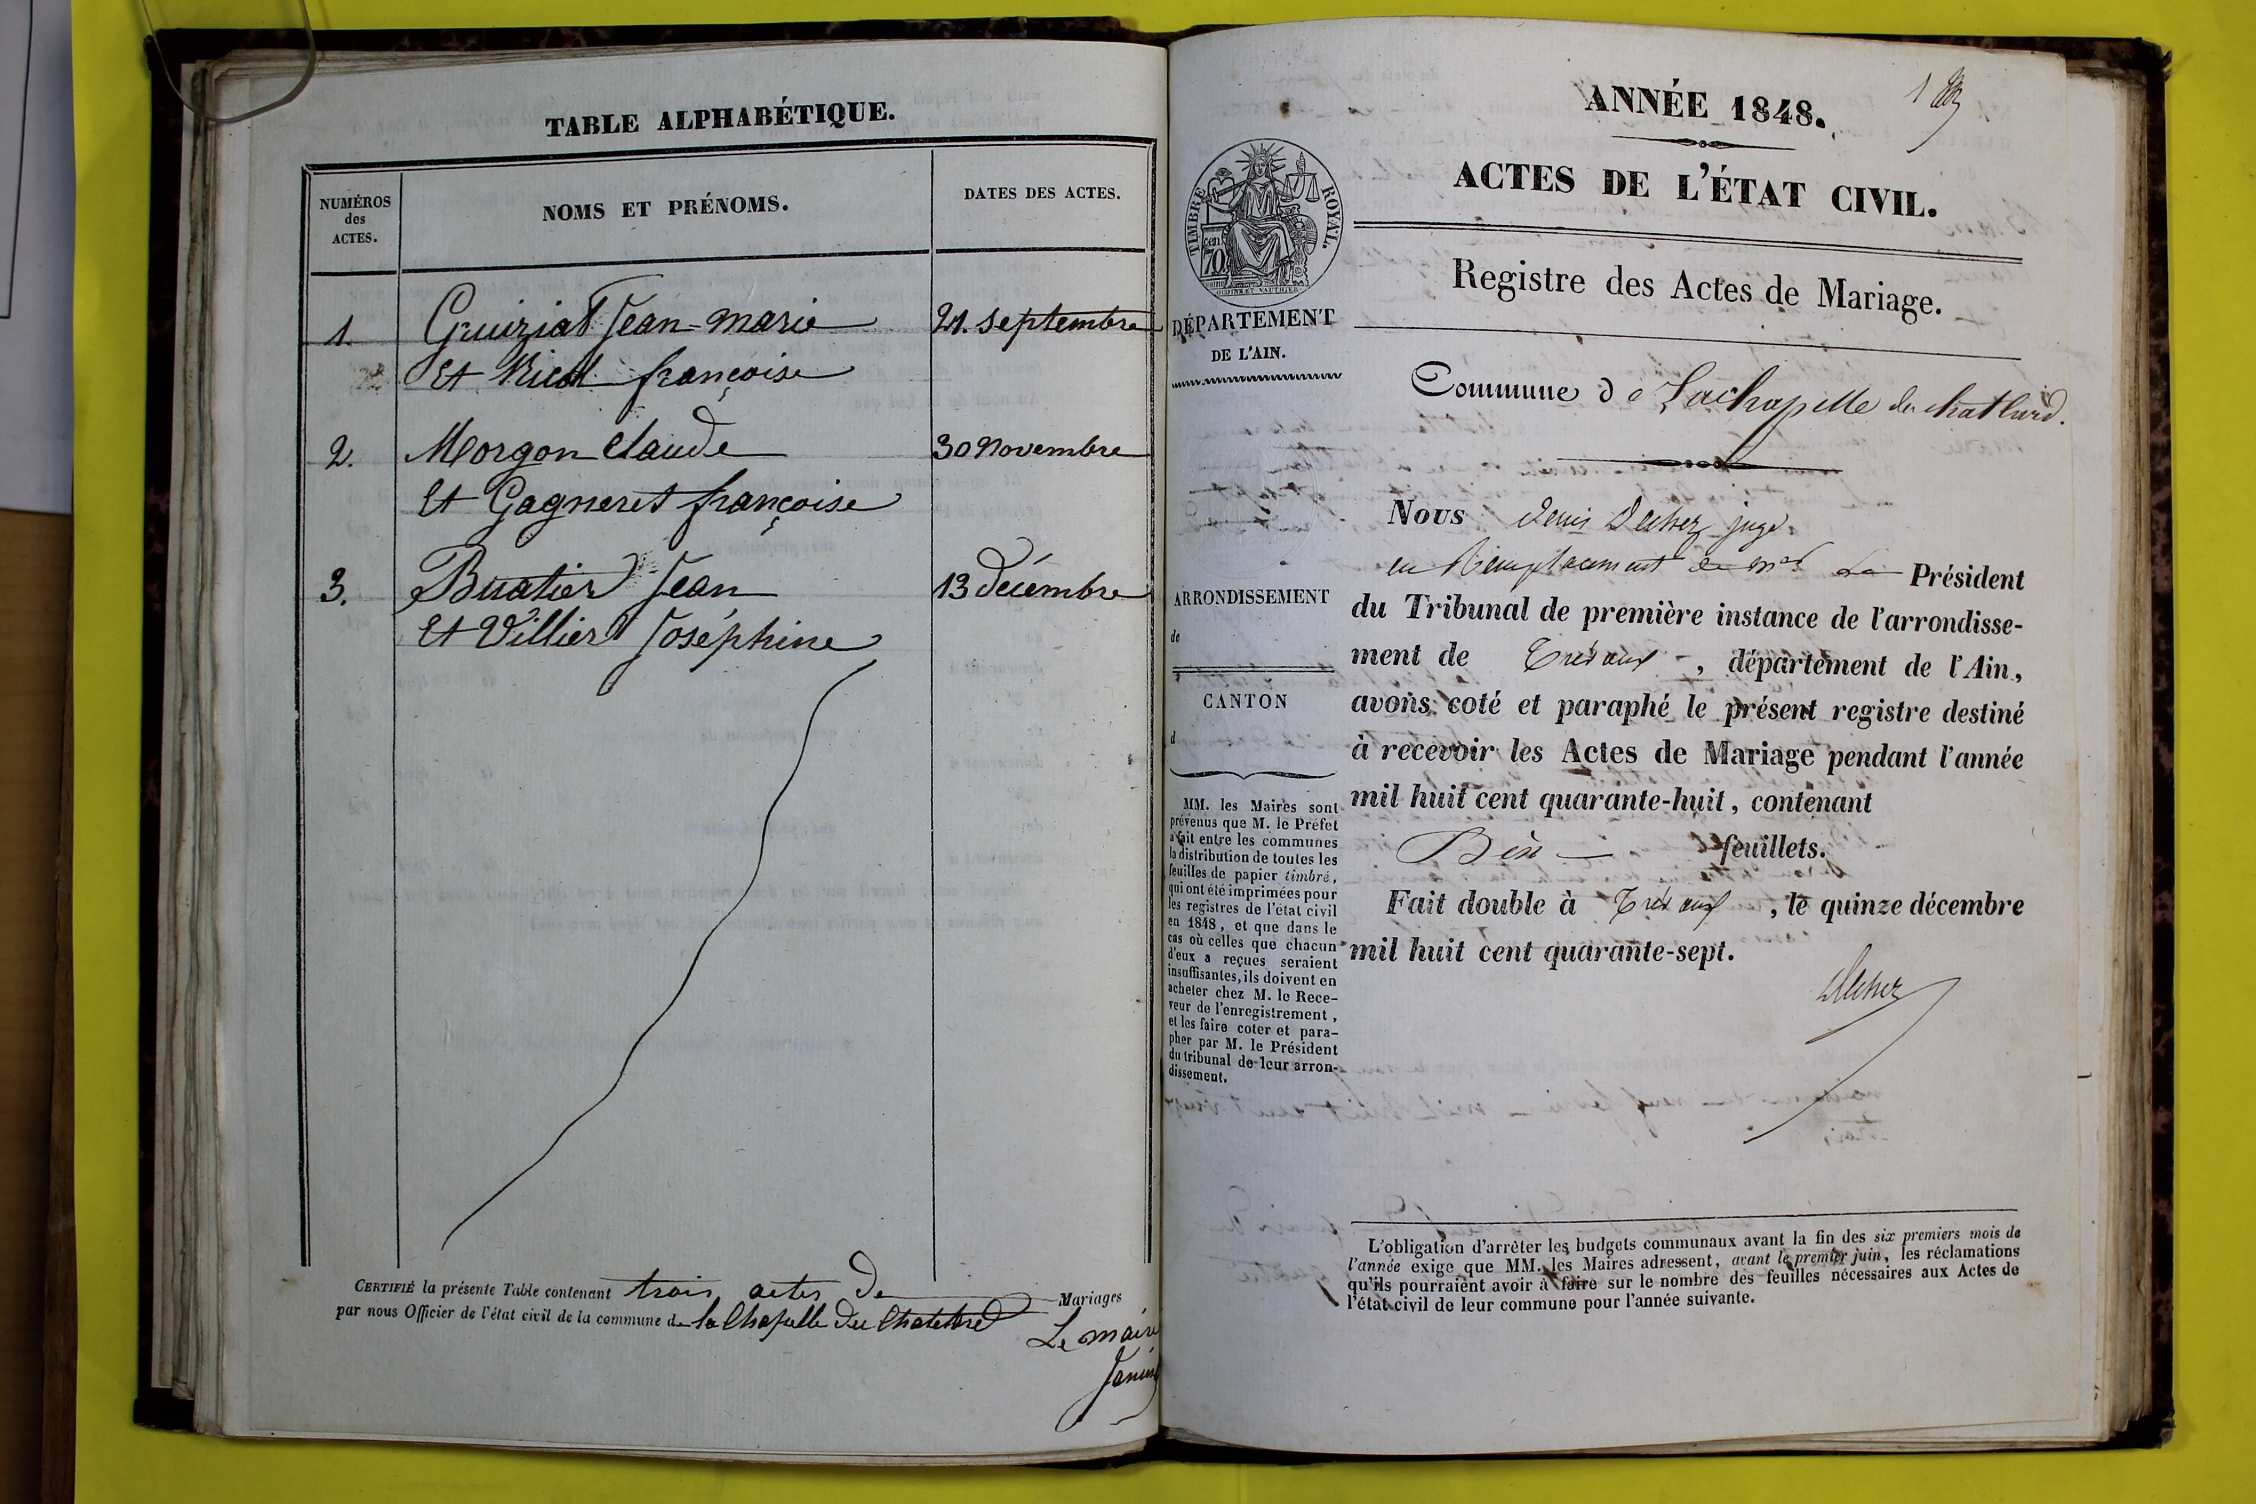 TABLE ALPHABÉTIQUE.
NUMÉROS
des
ACTES.
NOMS ET PRÉNOMS.
DATES DES ACTES.
1. Guiziat Jean-marie 21. septembre
Et Ricol françoise
2. Morgon Claude 30 Novembre
Et Gagneret françoise
3. Buatier Jean 13 décembre
Et Villier Joséphine
CERTIFIÉ la présente Table contenant trois actes de Mariages
par nous Officier de l'état civil de la commune de la Chapelle du Chatelard
Le maire
Janin
1
ANNÉE 1848.
ACTES DE L'ÉTAT CIVIL.
Registre des Actes de Mariage.
TIMBRE ROYAL.
cen
70
DÉPARTEMENT
DE L'AIN.
Commune de Lachapelle du chatelard.
Nous denis juge
en Remplacement de Mr Le Président
du Tribunal de première instance de l'arrondisse-
ment de Trévoux, département de l'Ain,
avons coté et paraphé le présent registre destiné
à recevoir les Actes de Mariage pendant l'année
mil huit cent quarante-huit, contenant
Dix feuillets.
Fait double à Trévoux, le quinze décembre
mil huit cent quarante-sept.
ARRONDISSEMENT
de
CANTON
d
MM. les Maires sont
prévenus que M. le Préfet
a fait entre les communes
la distribution de toutes les
feuilles de papier timbré,
qui ont été imprimées pour
les registres de l'état civil
en 1848, et que dans le
cas où celles que chacun
d'eux a reçues seraient
insuffisantes, ils doivent en
acheter chez M. le Rece-
veur de l'enregistrement,
et les faire coter et para-
pher par M. le Président
du tribunal de leur arron-
dissement.
L'obligation d'arrêter les budgets communaux avant la fin des six premiers mois de
l'année exige que MM. les Maires adressent, avant le premier juin, les réclamations
qu'ils pourraient avoir à faire sur le nombre des feuilles nécessaires aux Actes de
l'état civil de leur commune pour l'année suivante.